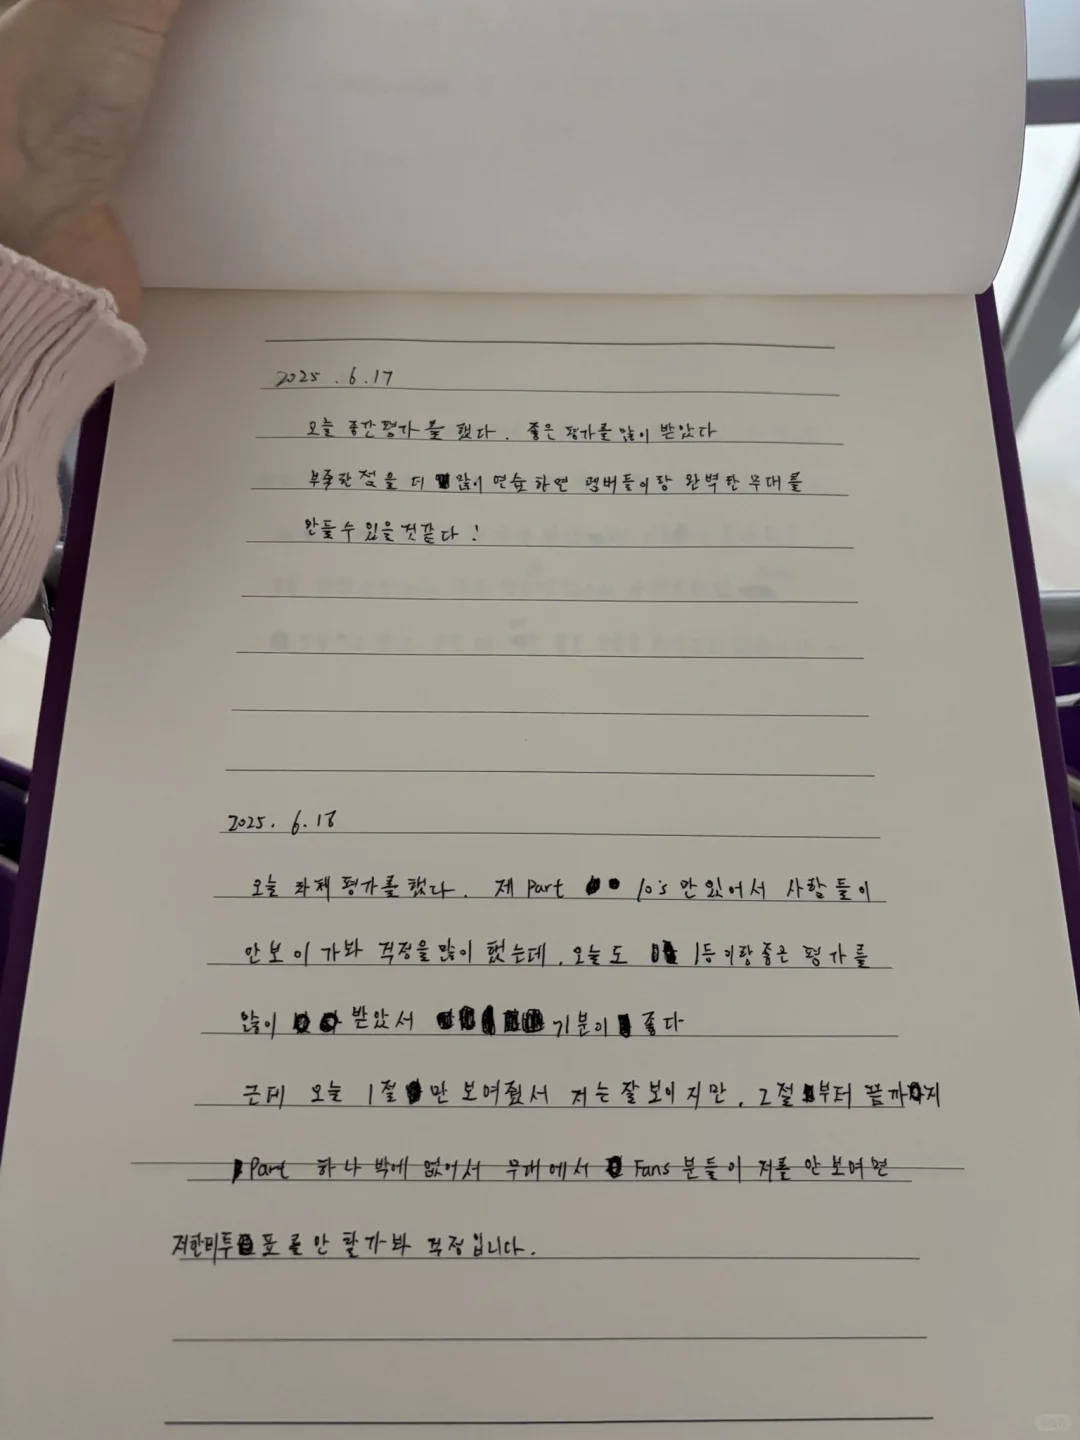 2025.6.17
오늘 중간평가를 했다. 좋은 평가를 많이 받았다
부족한 점을 더 많이 연습하면 멤버들이랑 완벽한 무대를
만들수있을것같다!
2025.6.18
오늘 좌체 평가를 했다. 제 part 10's 만 있어서 사람들이
안보이가봐 걱정을많이 했는데. 오늘도 1등이랑좋은 평가를
많이 받았서 기분이 좋다
근데 오늘 1절만 보여줬서 저는잘보이지만, 2절부터 끝까지
Part 하나 밖에 없어서 무대에서 Fans 분들이 저를 안보여면
저한테투표를안 할가봐 걱정입니다.